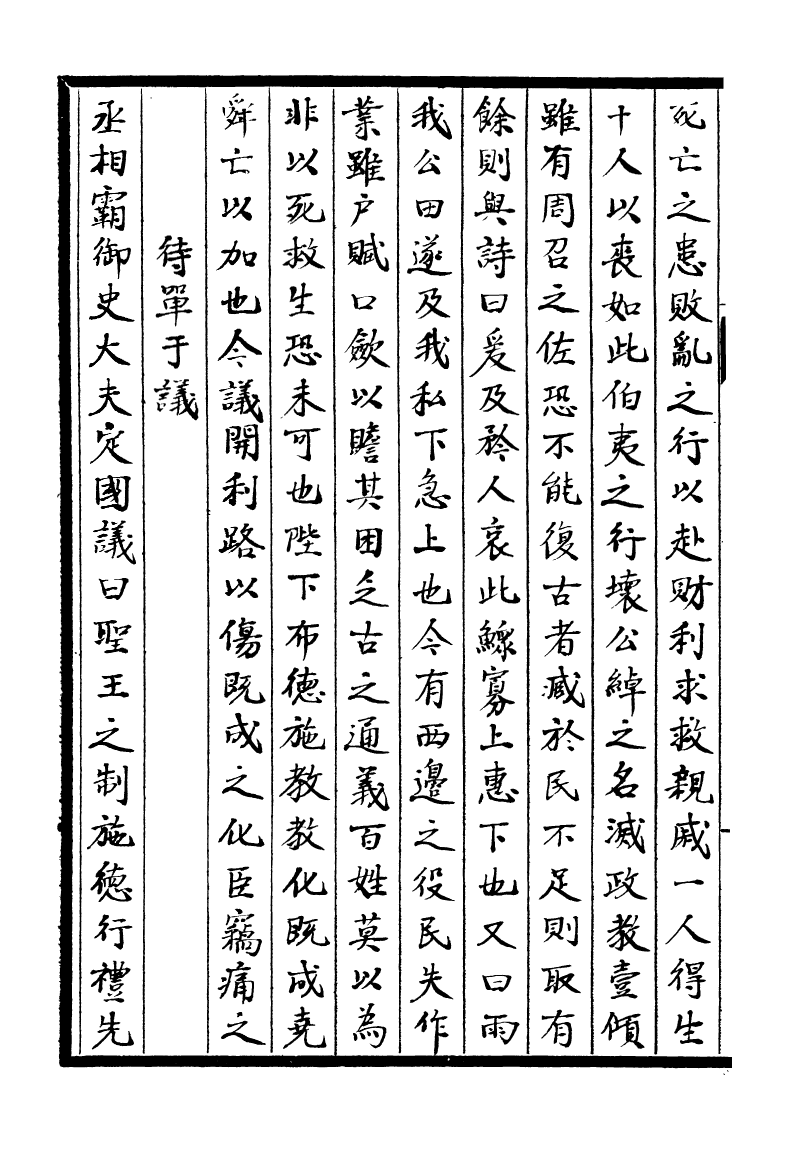 死亡之患敗亂之行以赴財利求救親戚一人得生
十人以喪如此伯夷之行壞公綽之名滅政教壹傾
雖有周召之佐恐不能復古者臧於民不足則取有
餘則與詩曰爰及矜人哀此鰥寡上惠下也又曰雨
我公田遂及我私下急上也今有西邊之役民失作
業雖户賦口歛以贍其困乏古之通義百姓莫以為
非以死救生恐未可也陛下布德施教教化既成堯
舜亡以加也今議開利路以傷既成之化臣竊痛之
待單于議
丞相霸御史大夫定國議曰聖王之制施德行禮先